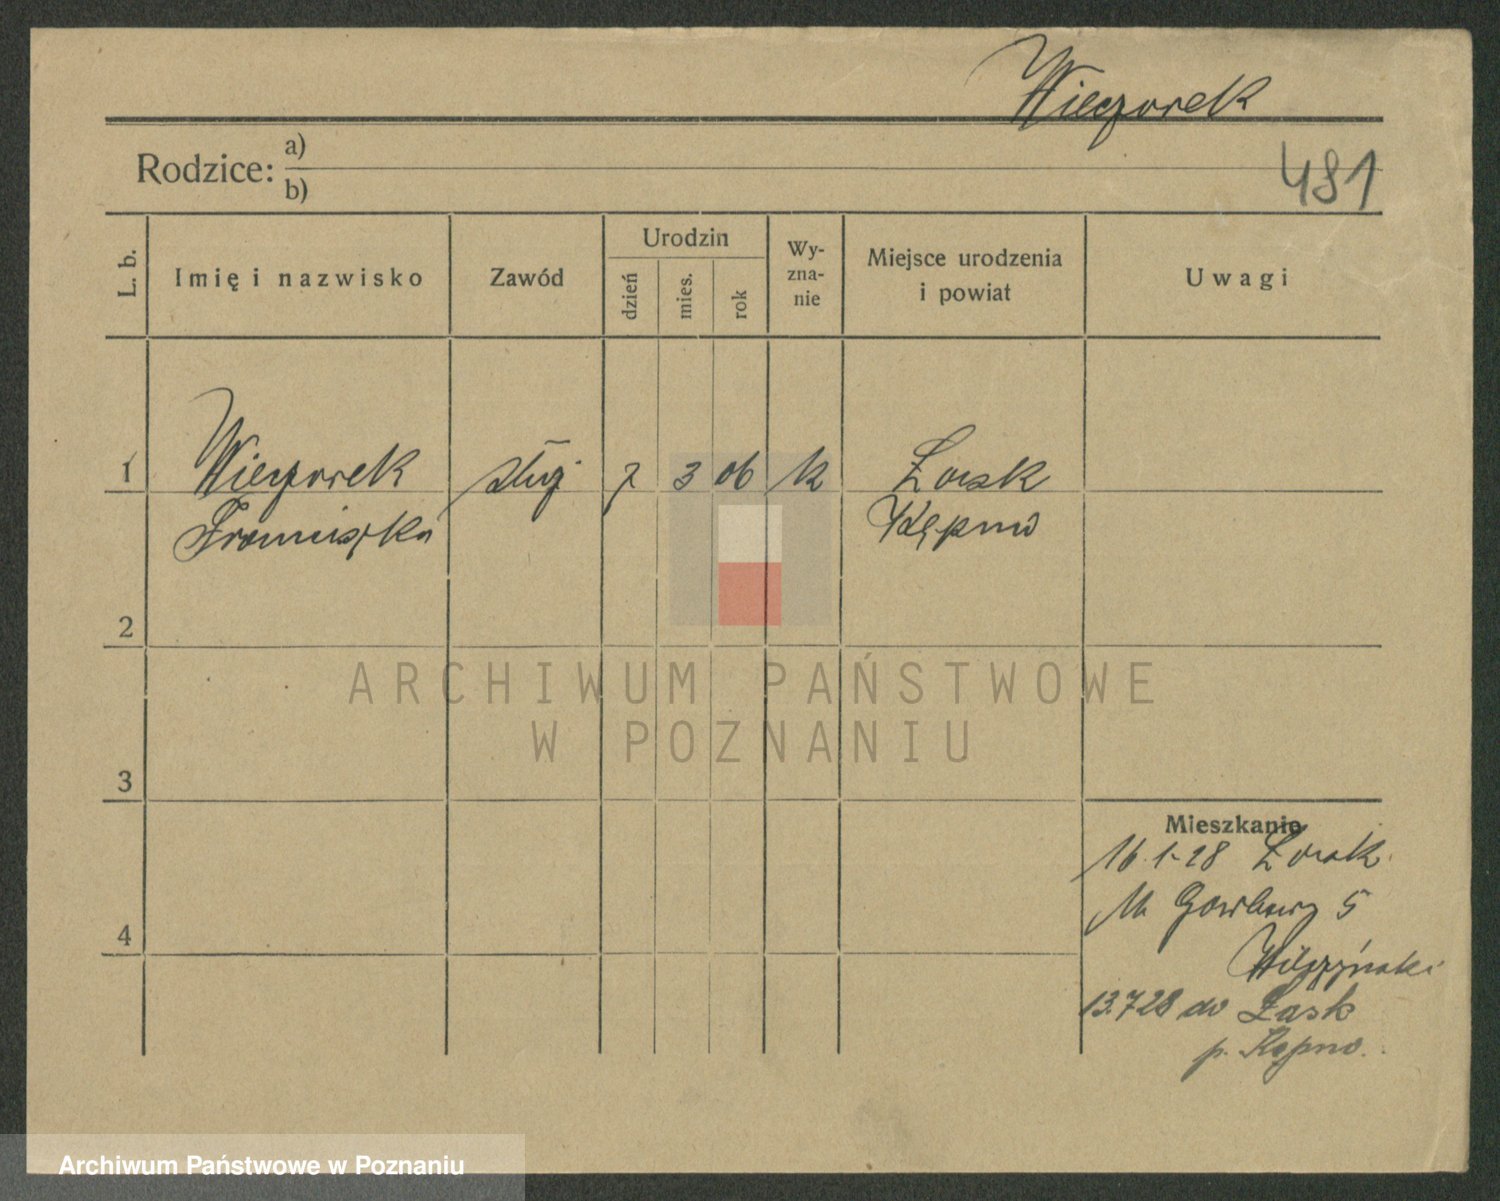 Wieczorek
Rodzice: a)
b)
481
L. b.
Imię i nazwisko
Zawód
Urodzin
dzień
mies.
rok
Wy-
zna-
nie
Miejsce urodzenia
i powiat
Uwagi
1 Wieczorek służ. 7 3 06 k Łask
Franciszka Kępno
2
ARCHIWUM PAŃSTWOWE
W POZNANIU
3
Mieszkanie
16.1.28 Łask
5
4
Wilczyński
13.7.28 do Łask
p. Kępno.
Archiwum Państwowe w Poznaniu